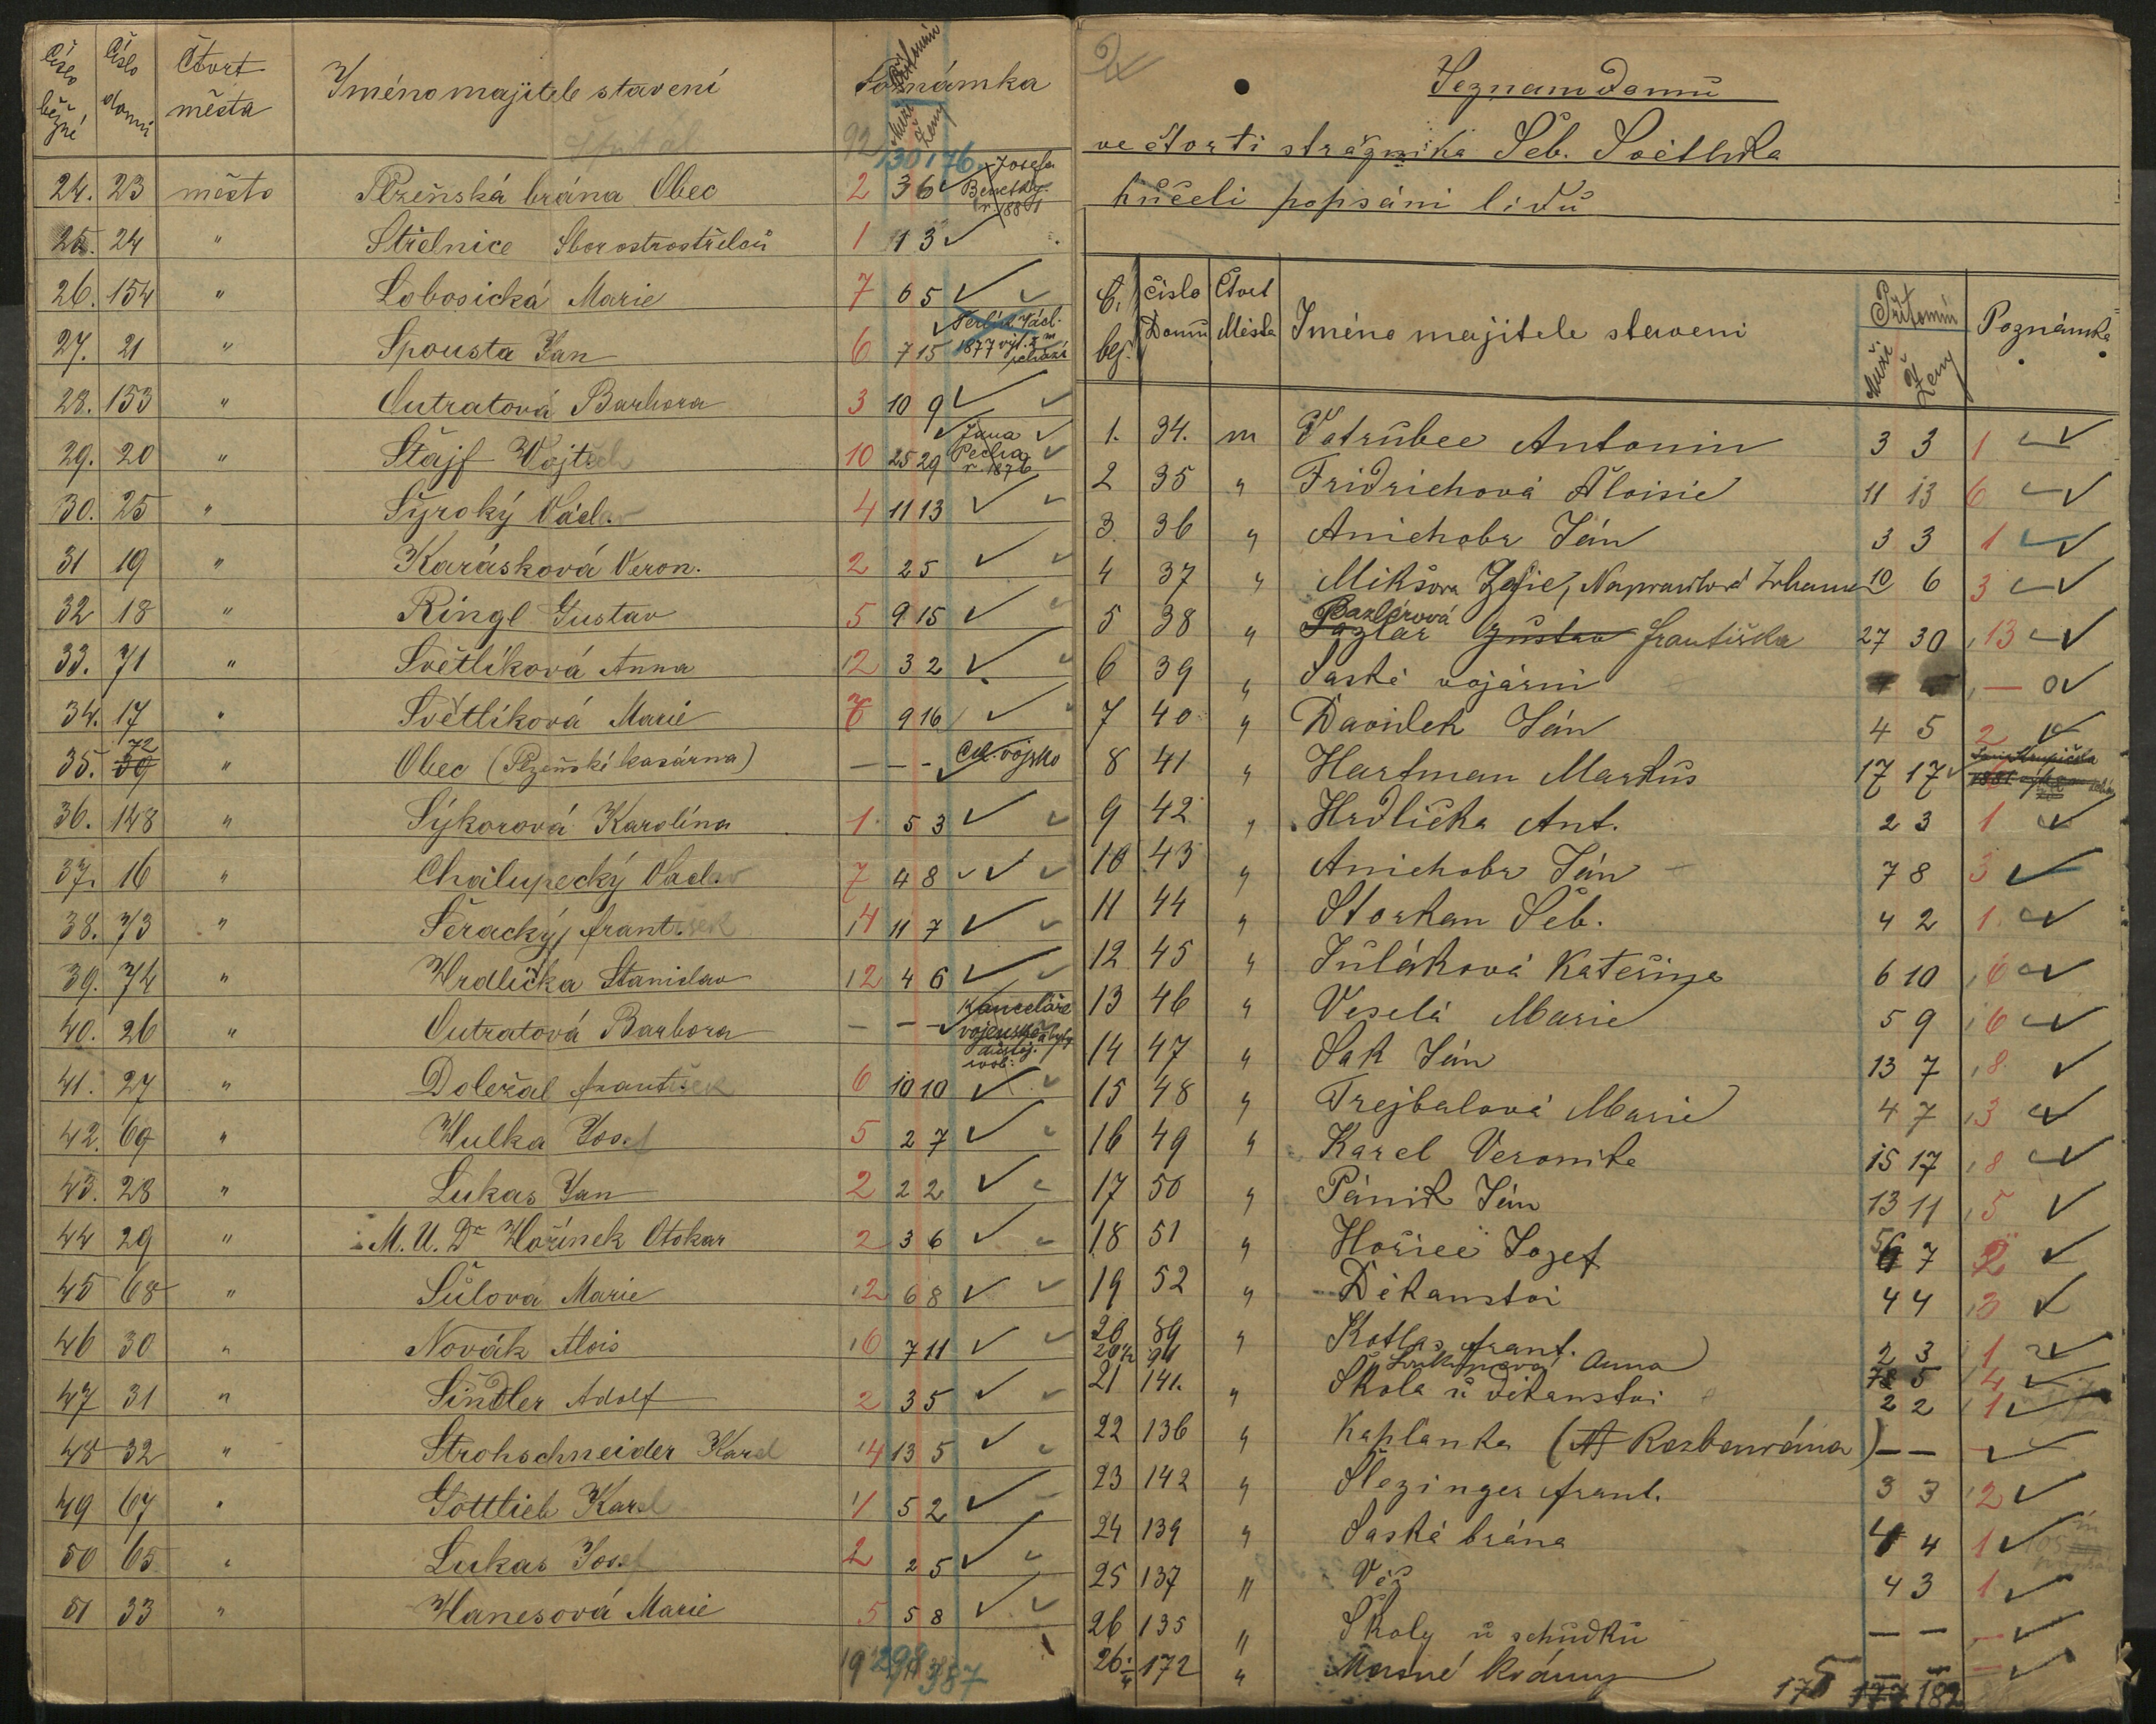 Číslo běžné Číslo domu Čtvrt města Jméno majitele stavení Poznámka
Přítomín Muži Ženy
92 130 176
24. 23 město Plzeňská brána Obec 2 3 6 Josefa r. 1881
25. 24 " Střelnice Sbor ostrostřelců 1 1 3
26. 154 " Lobosická Marie 7 6 5
27. 21 " Spousta Jan 6 7 15 1877
28. 153 " Outratová Barbora 3 10 9
29. 20 " Štajf Vojtěch 10 25 29 Jana Pecha r. 1876
30. 25 " Syroký Václav 4 11 13
31 19 " Karásková Veron. 2 2 5
32 18 " Ringl Gustav 5 9 15
33. 71 " Světlíková Anna 12 3 2
34. 17 " Světlíková Marie 9 16
35. 72 " Obec (Plzeňské kasárna) — — — vojsko
36. 148 " Sýkorová Karolína 1 5 3
37. 16 " Chalupecký Václav 7 4 8
38. 73 " Šeracký frantšek 14 11 7
39. 74 " Hrdlička Stanislav 12 4 6
40. 26 " Outratová Barbora — — — Kanceláře vojenské
41. 27 " Doležal frantšek 6 10 10
42. 69 " Hulka Josef 5 2 7
43. 28 " Lukas Jan 2 2 2
44 29 " M. U. Dr Hořínek Otokar 2 3 6
45 68 " Šůlova Marie 12 6 8
46 30 " Novák Alois 7 11
47 31 " Šindler Adolf 2 3 5
48 32 " Strohschneider Karel 14 13 5
49 67 " Gottlieb Karel 1 5 2
50 65 " Lukas Josef 2 2 5
51 33 " Hanesová Marie 5 5 8
387
Seznam domů
ve čtvrti strážníka Šeb. Světlíka
kůčeli popsáni lidů
Č. běž. číslo Domů Čtvrt Města Jméno majitele staveni Přítomín Muži Ženy Poznámka
1. 34. m Vatrubec Antonin 3 3 1
2 35 " Fridrichová Aloisie 11 13 6
3. 36 " Anichobr Ján 3 3 1
4 37 " Mikšova Žofie, 10 6 3
5 38 " Bazlerová Gustav františka 27 30 13
6 39 " Saské vojárni — 0
7 40 " Davidek Ján 4 5 2
8 41 " Hartman Markus 17 17
9 42 " Hrdlička Ant. 2 3 1
10 43 " Anichobr Ján 7 8 3
11 44 " Storkan Šeb. 4 2 1.
12 45 " Juláková Kateřina 6 10 6
13 46 " Veselá Marie 5 9 6
14 47 " Sak Ján 13 7 8
15 48 " Trejbalová Marie 4 7 3
16 49 " Karel Veronika 15 17 8
17 50 " Pánik Ján 13 11 5
18 51 " Hořice Jozef 7 2
19 52 " Děkanstvi 4 4 3
20 89 " Kotlas frant. 2 3 1
20½ 94 Anna 5 4
21 141. " Škola ů děkanstvi 2 2 1
22 136 " Kaplanka — — —
23 142 " Šlezinger frant. 3 3 2
24 139 " Saská brána 4 4 1
25 137 " Věž 4 3 1
26 135 " Školy ů schudků — — —
172 " Masné krámy — — —
175 177 182